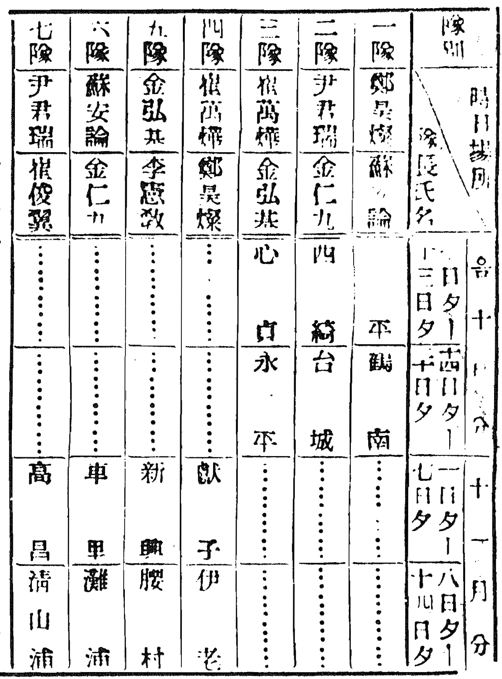 隊別 時日場所 隊長氏名
음十 分 十一月分
日夕ー十三日夕 十四日夕ー 十日夕 一日夕ー七日夕 八日夕ー十四日夕
一隊 鄭昊燦 蘇 論 平 鶴南 ……… ………
二隊 尹君瑞 金仁九 西綺 台城 ……… ………
三隊 崔萬燁 金弘基 心貞 永平 ……… ………
四隊 崔萬燁 鄭昊燦 ……… ……… 獻子 伊老
九隊 金弘基 李憲敎 ……… ……… 新興 腰村
六隊 蘇安論 金仁九 ……… ……… 車里 灘浦
七隊 尹君瑞 崔俊翼 ……… ……… 高昌 淸山浦